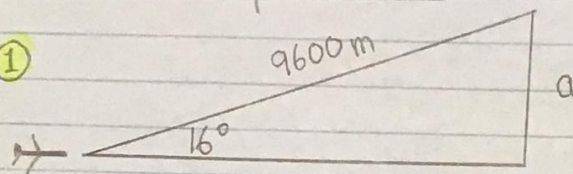 ①
9600 m
a
16°